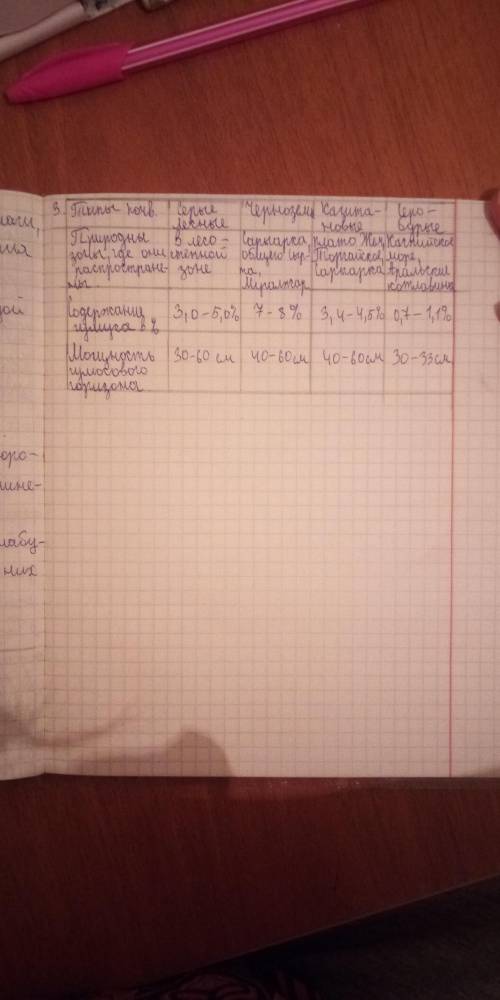 3. Типы почв. Серые лесные Чернозем Кашта-новые Серо-бурые
Природны зоны, где они распростране-ны. в лесо-степной зоне Сарыарка, общего Сыр-та, плато Торгайское, Сарыарка Каспийское море, Аральская котловина
Содержани гумуса в % 3,0-5,0% 7-8% 3,4-4,5% 0,7-1,1%
Мощность гумосового горизона 30-60 см 40-60см 40-60см 30-33см
ких